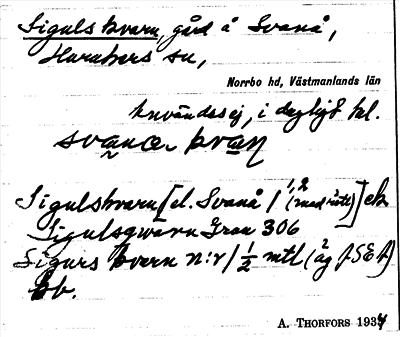 Sigulskvarn, gård å Svanå,
Harakers sn,
Norrbo hd, Västmanlands län
användes ej, i dagligt tal.
svana kvan
Sigulskvarn [el. Svanå / 1,2 (med rätt)] ek
Sigulsqwarn Gran 306
Sigurs kvarn n:r / ½ mtl (äg
bb.
A. THORFORS 1934